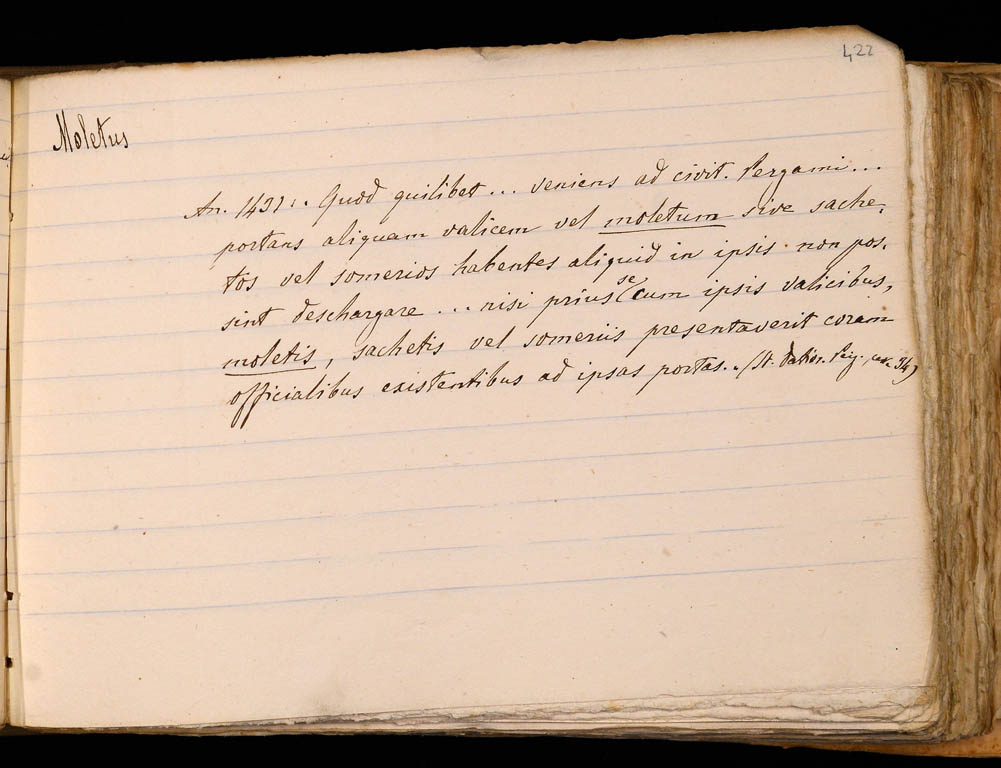 422
Moletus
An. 1431:. Quod quilibet ... veniens ad civit. Pergami ...
portans aliquam valicem vel moletum sive sache-
tos vel somerios habentes aliquid in ipsis non pos-
sint deschargare ... nisi prius se cum ipsis valicibus,
moletis, sachetis vel someriis presentaverit coram
officialibus existentibus ad ipsas portas. (St. datior. 34)